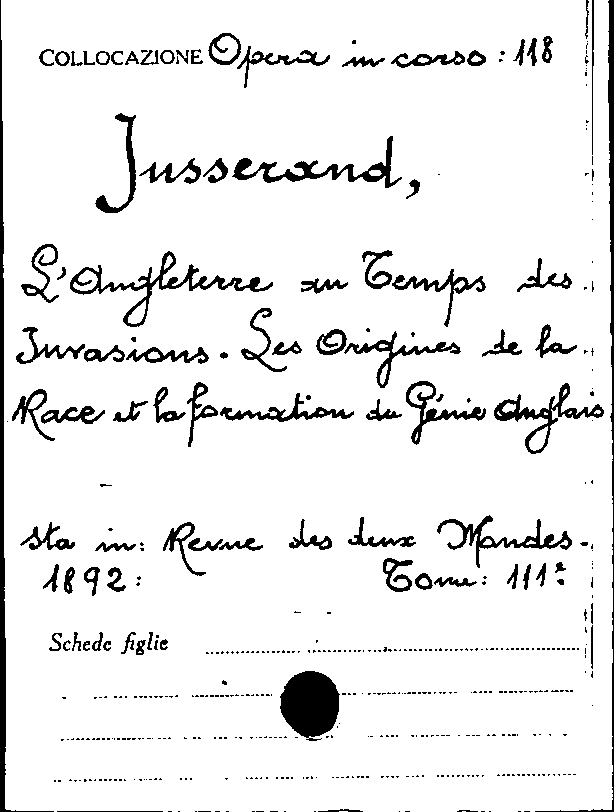 COLLOCAZIONE Opera in corso : 118
Jusserand,
L'Angleterre au Temps des
Invasions. Les Origines de la
Race et la formation du Génie Anglais
sta in: Revue des deux Mondes.
1892: Tome: 111º
Schede figlie